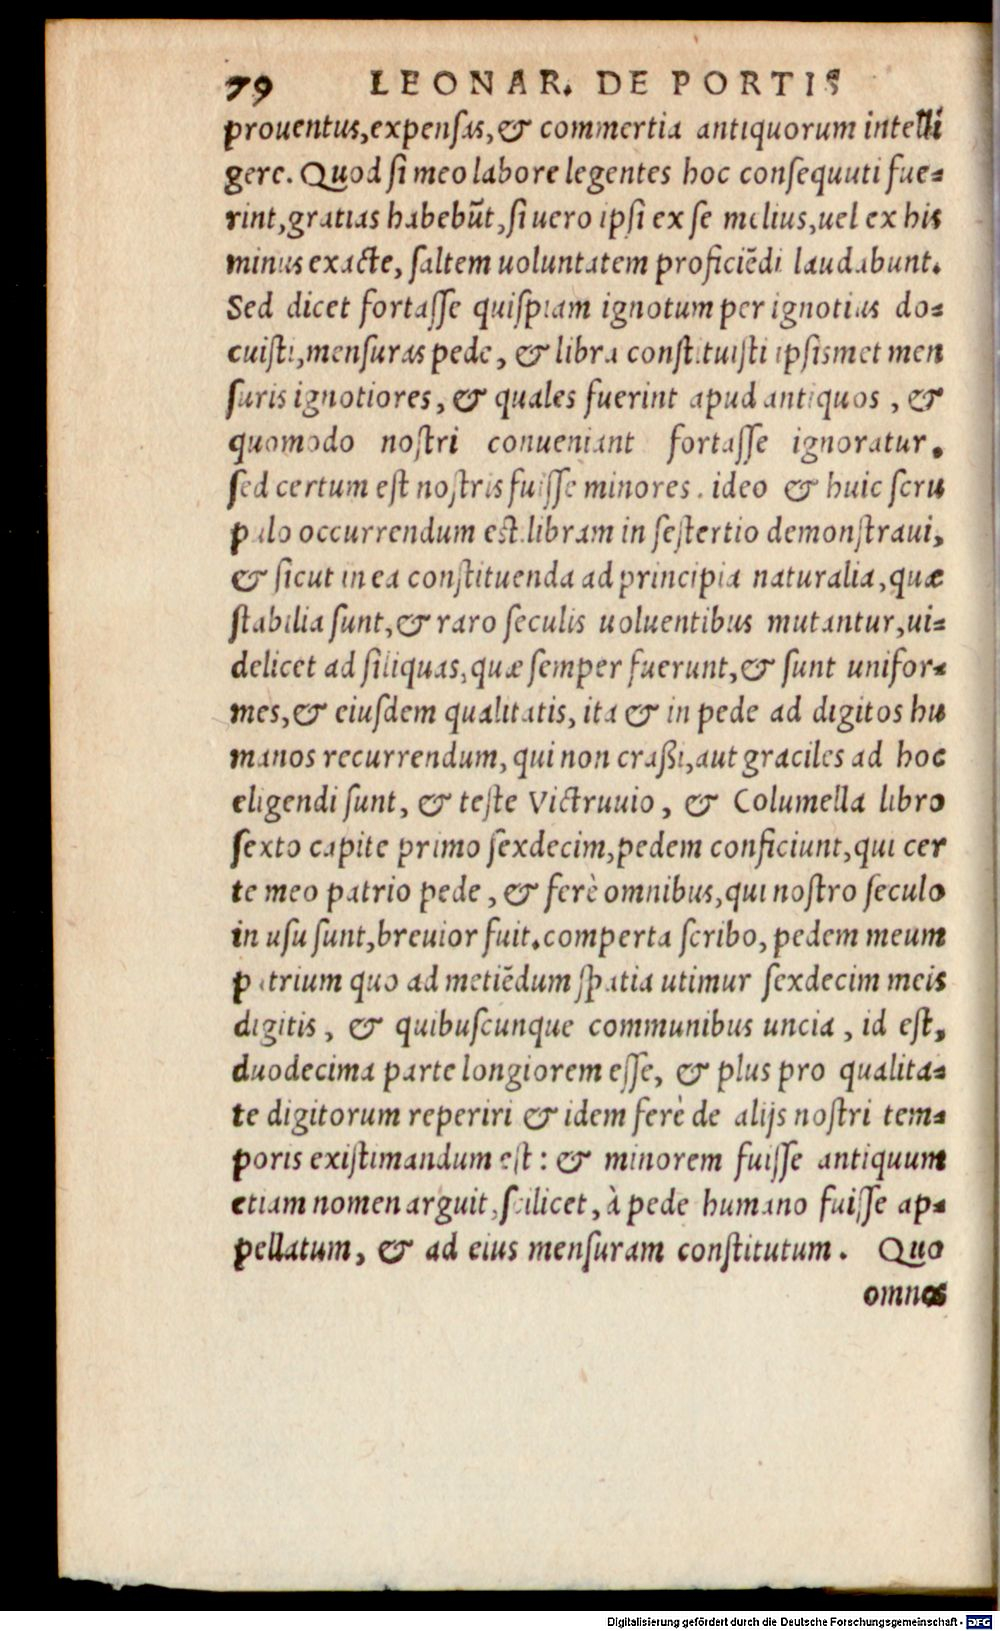 79 LEONAR. DE PORTIS
prouentus,expenſas,& commertia antiquorum intelli
gere. Quod ſi meo labore legentes hoc conſequuti fue=
rint,gratias habebũt,ſi uero ipſi ex ſe melius,uel ex his
minus exacte, ſaltem uoluntatem proficiẽdi laudabunt.
Sed dicet fortaſſe quiſpiam ignotum per ignotius do=
cuiſti,menſuras pede, & libra conſtituiſti ipſismet men
ſuris ignotiores, & quales fuerint apud antiquos , &
quomodo noſtri conueniant fortaſſe ignoratur.
ſed certum eſt noſtris fuiſſe minores . ideo & huic ſcru
pulo occurrendum eſt.libram in ſeſtertio demonſtraui,
& ſicut in ea conſtituenda ad principia naturalia,quæ
ſtabilia ſunt,& raro ſeculis uoluentibus mutantur,ui=
delicet ad ſiliquas,quæ ſemper fuerunt,& ſunt unifor=
mes,& eiuſdem qualitatis, ita & in pede ad digitos hu
manos recurrendum, qui non craßi,aut graciles ad hoc
eligendi ſunt, & teſte Victruuio , & Columella libro
ſexto capite primo ſexdecim,pedem conficiunt,qui cer
te meo patrio pede , & ferè omnibus,qui noſtro ſeculo
in uſu ſunt,breuior fuit.comperta ſcribo, pedem meum
patrium quo ad metiẽdum ſpatia utimur ſexdecim meis
digitis , & quibuſcunque communibus uncia , id eſt,
duodecima parte longiorem eſſe, & plus pro qualita=
te digitorum reperiri & idem ferè de alijs noſtri tem=
poris exiſtimandum eſt : & minorem fuiſſe antiquum
etiam nomen arguit,ſcilicet, à pede humano fuiſſe ap=
pellatum, & ad eius menſuram conſtitutum . Quo
omnes
Digitalisierung gefördert durch die Deutsche Forschungsgemeinschaft - DFG